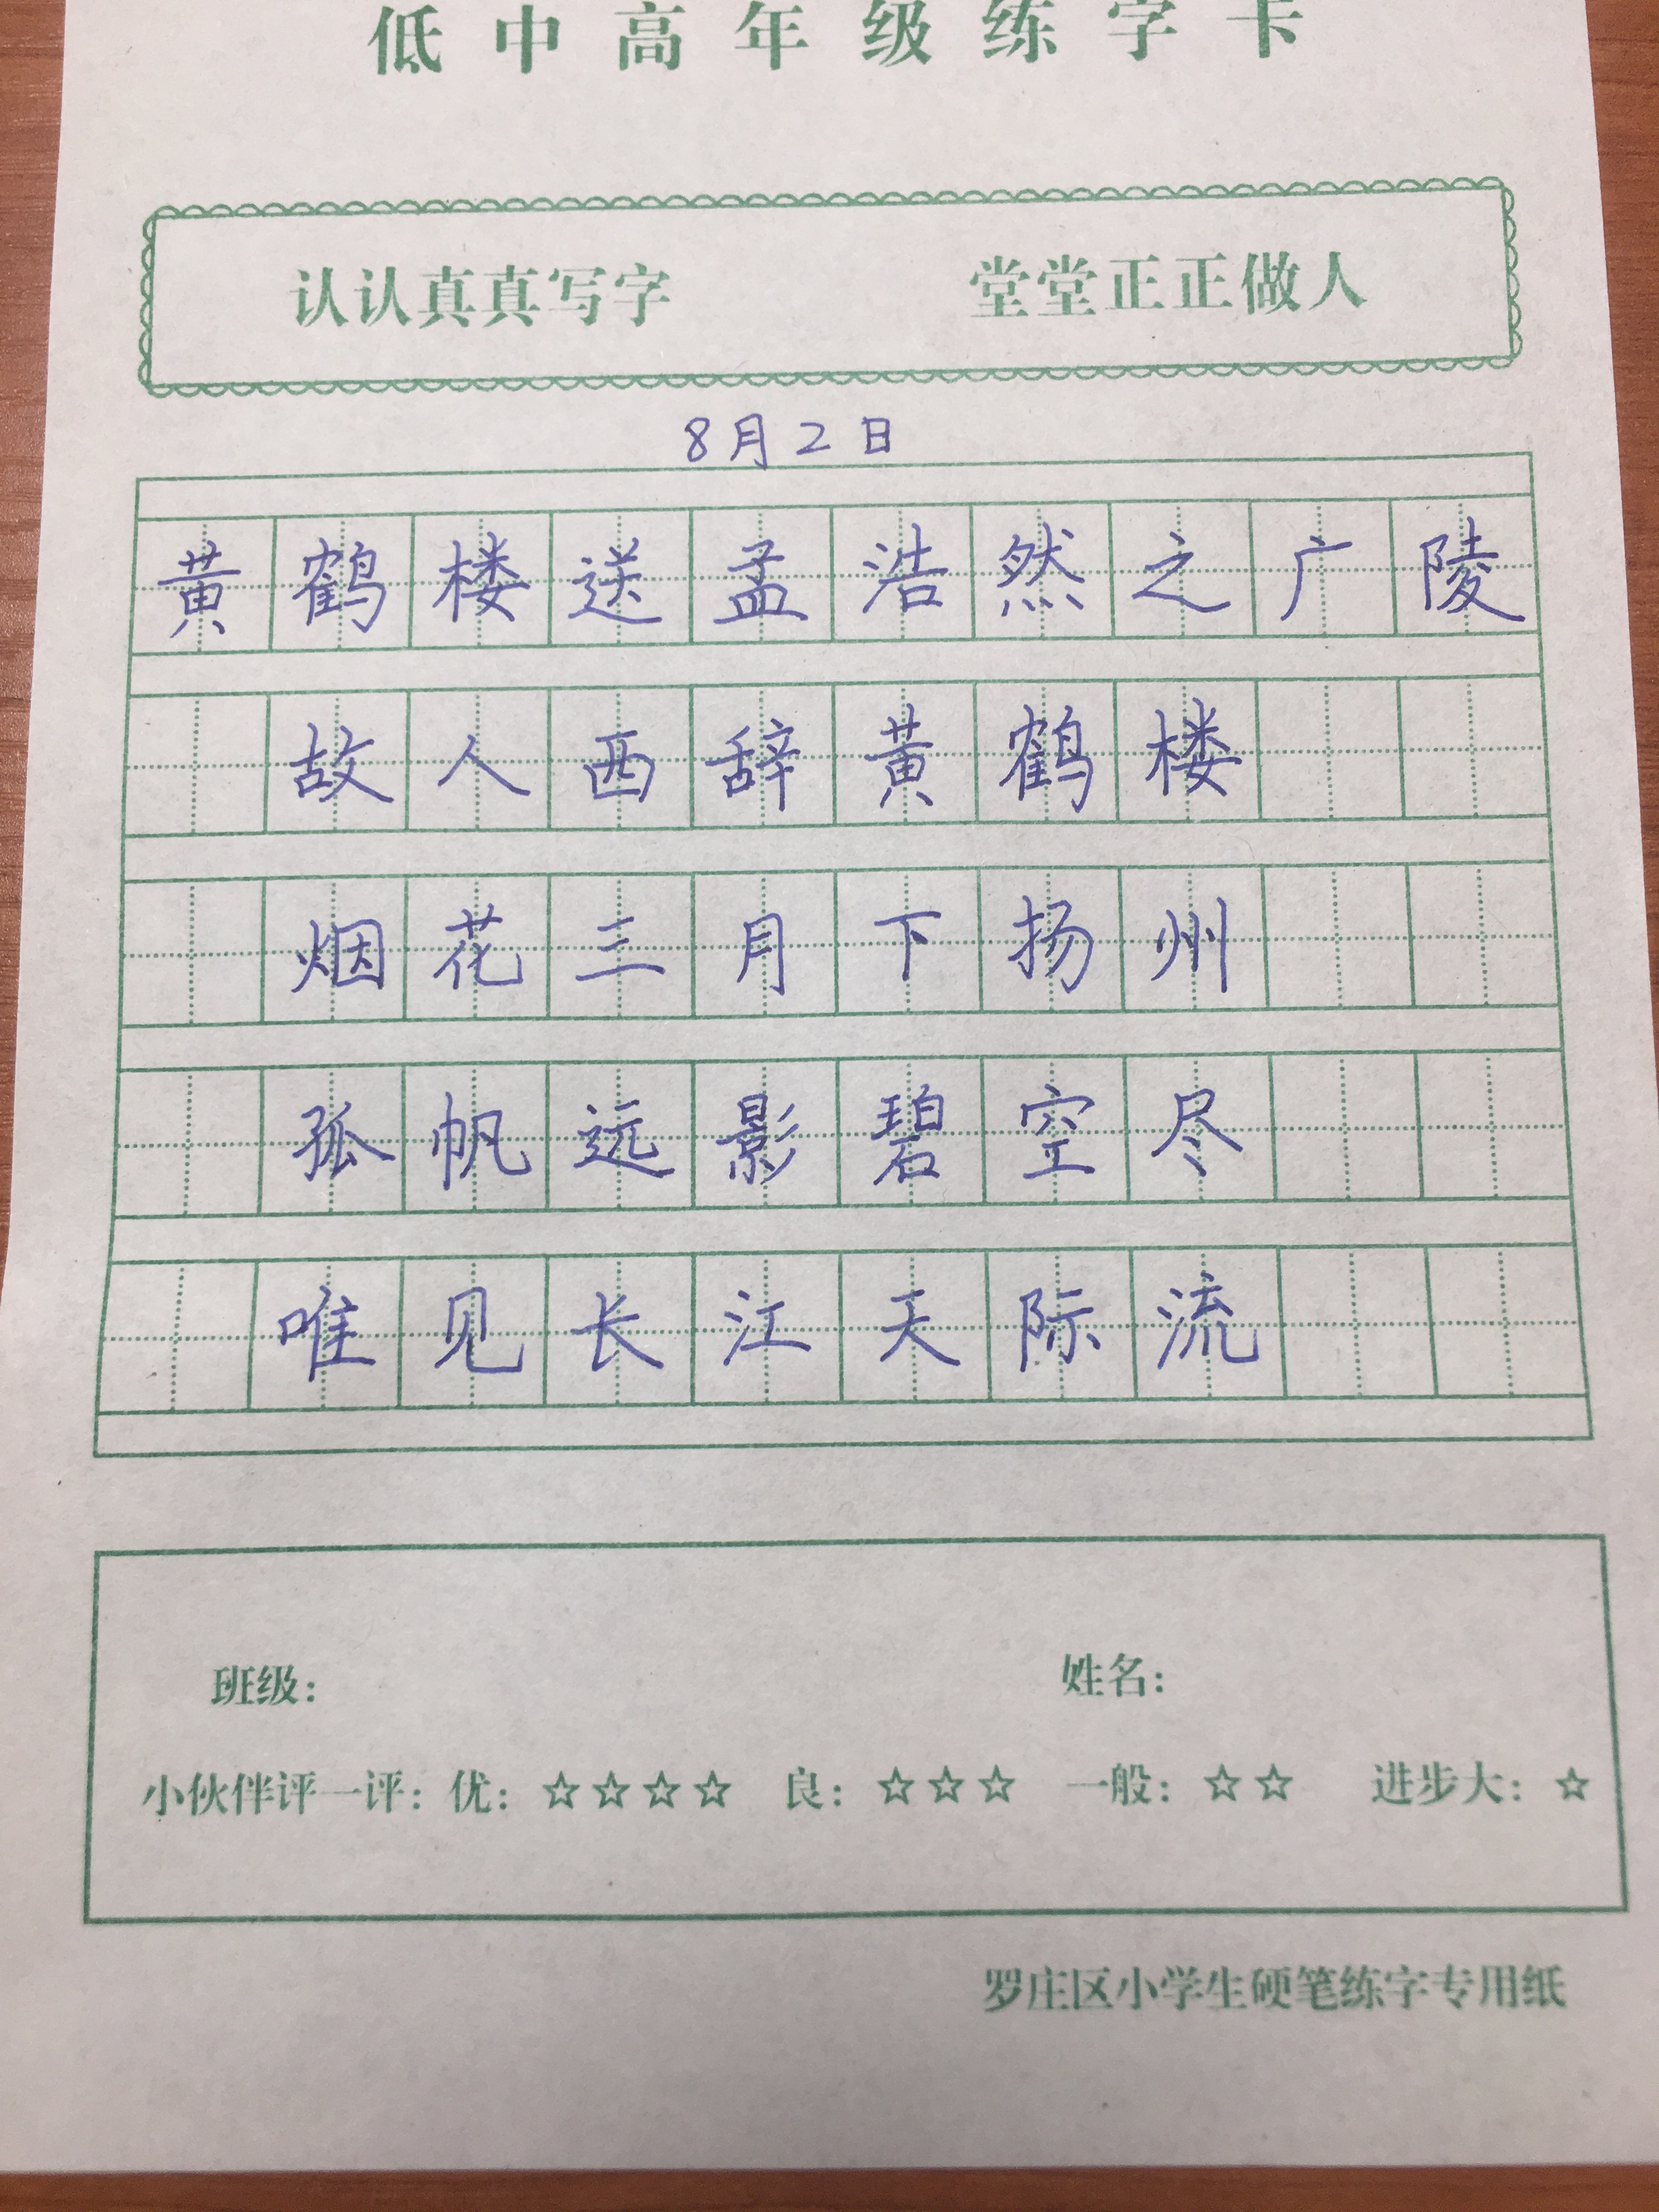 低中高年级练字卡
认认真真写字 堂堂正正做人
8月2日
黄鹤楼送孟浩然之广陵
故人西辞黄鹤楼
烟花三月下扬州
孤帆远影碧空尽
唯见长江天际流
班级： 姓名：
小伙伴评一评：优：☆☆☆☆ 良：☆☆☆ 一般：☆☆ 进步大：☆
罗庄区小学生硬笔练字专用纸